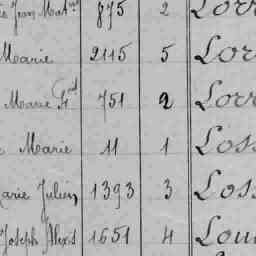 Jean Mat.rd 875 2 Lorr
Marie 2115 5 Lor
Marie Gd 751 2 Lorr
Marie 11 1 Loss
Marie Julien 1393 3 Loss
Joseph Alexis 1651 4 Lou